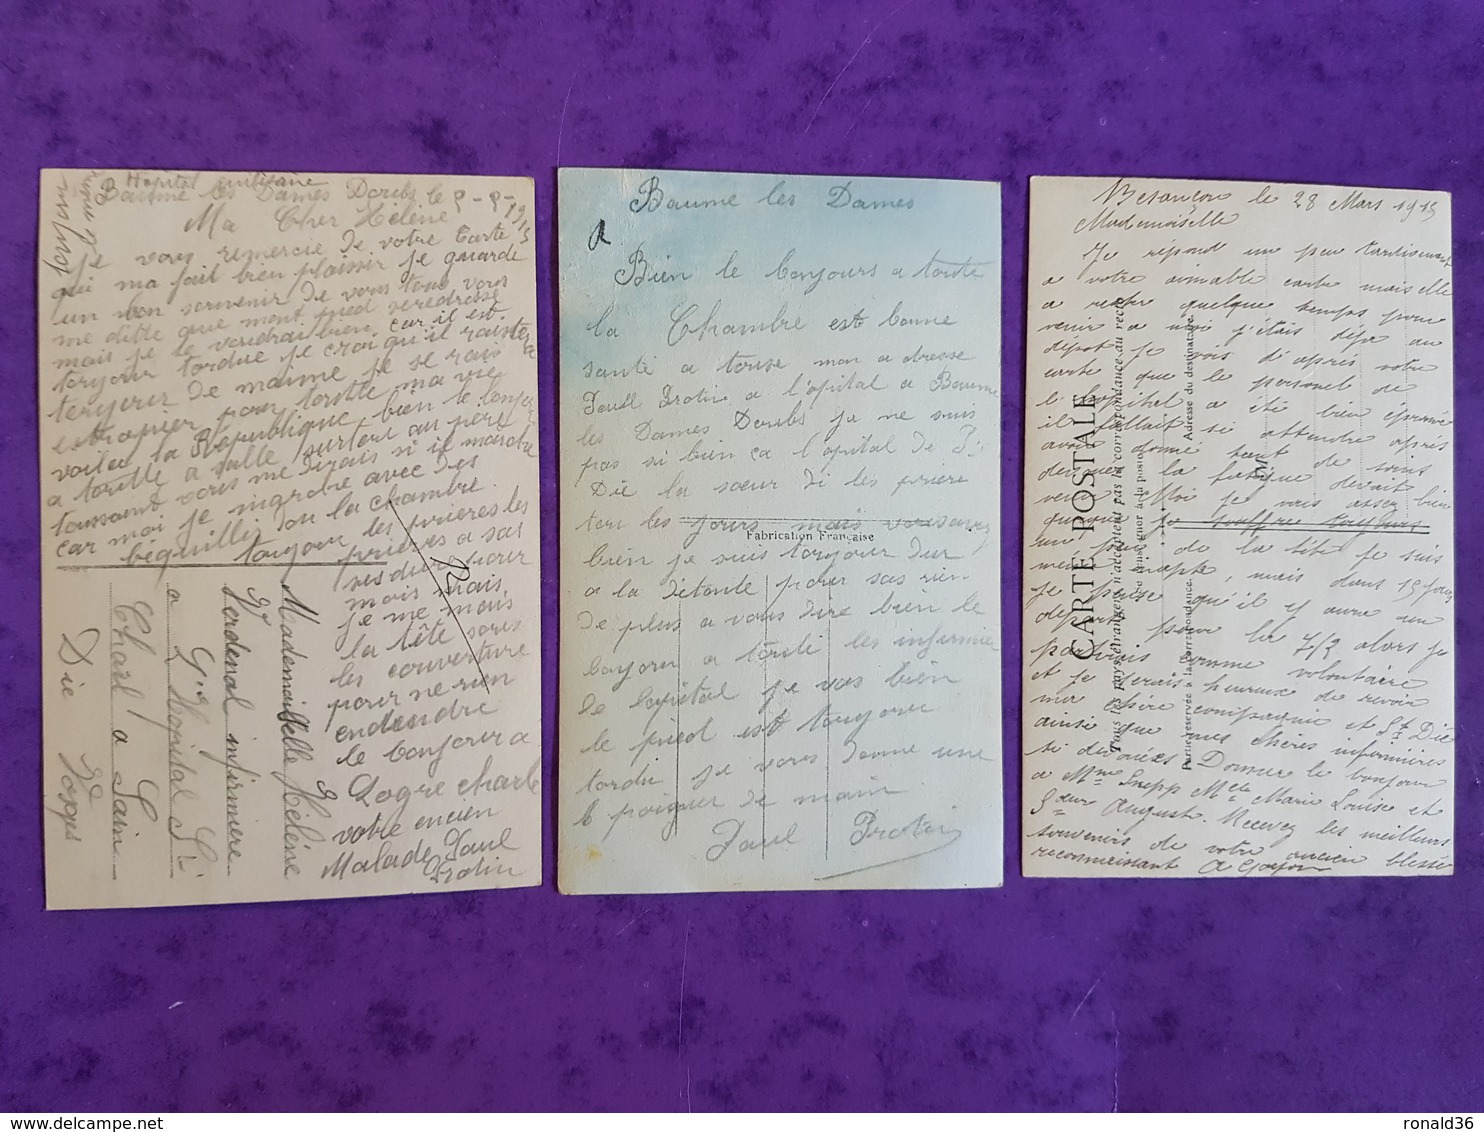 Hopital militaire
Baume les Dames Doubs le 8-8-1915
Ma Cher Helene
je vous remercie de votre Carte
qui ma fait bien plaisir je guarde
un bon souvenir de vous tous vous
me ditte que mont pied seredresse
mais je le voudrai bien car il est
toujour tordue je croi qu'il rastera
terjour de maime je se rais
estropier pour toutte ma vie
voila la Republique bien le bonjour
a toutte la salle surtout au père
toussaint vous me dirais si il marche
car moi je marche avec des
béquilles on la chambre
toujour les prieres les
prieres a sas
ses dure pour
mois mais
je me mais
la tête sous
les couverture
pour ne rien
endendre
le bonjour a
Logre charle
votre encien
Malade Paul
Protin
Mademoiselle Hélène
infirmiere
a Hopital St
Charl a Sain
Die Vosges
Baume les Dames
Bien le bonjours a toute
la Chambre est bonne
santé a touse mon adresse
Paull Protin a l'opital a Baume
les Dames Doubs je ne suis
pas si bien ca l'opital de St
Die la sœur di les prière
tou les jours mais vous savez
Fabrication Française
bien je suis toujour dur
a la détente pour sas rien
de plus a vous dire bien le
bonjour a toute les infirmie
de lopital je vas bien
le pied est toujour
tordu je vous donne une
poigner de main
Paul Protin
Besançon le 28 Mars 1915
Mademoiselle
Je répond un peu tardivement
a votre aimable carte mais elle
a rester quelque temps pour
venir a moi j'étais déja au
dépot je vois d'après votre
carte que le personel de
l'hopital a été bien éprouvé
il fallait si attendre après
avoir donné tant de soins
desque la fatigue devait
venir Moi je vais assez bien
quoique je souffre toujours
un peu de la tête je suis
inapte, mais dans 15 jours
je pense qu'il y aura un
départ pour le 7/3 alors je
partirais comme volontaire
et je serais heureux de revoir
ma chère compagnie et St Die
ainsi que mes chères infirmières
si dévouées Donner le bonjour
a Mme Snepp Mlle Marie Louise et
Sœur August. Recevez les meilleurs
souvenirs de votre ancien blessé
reconnaissant
CARTE POSTALE
Tous les pays étrangers n'acceptent pas la correspondance au recto
Partie réservée à la correspondance.
Adresse du destinataire
M
ronald36